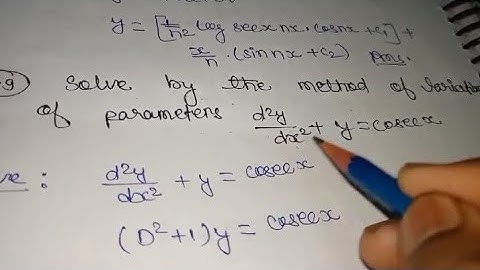 y = [1/n² log secx nx · cosnx + c₁] +
x/n · (sin nx + c₂) Ans.
9 Solve by the method of Variation
of parameters d²y/dx² + y = cosecx
d²y/dx² + y = cosecx
(D² + 1) y = cosecx